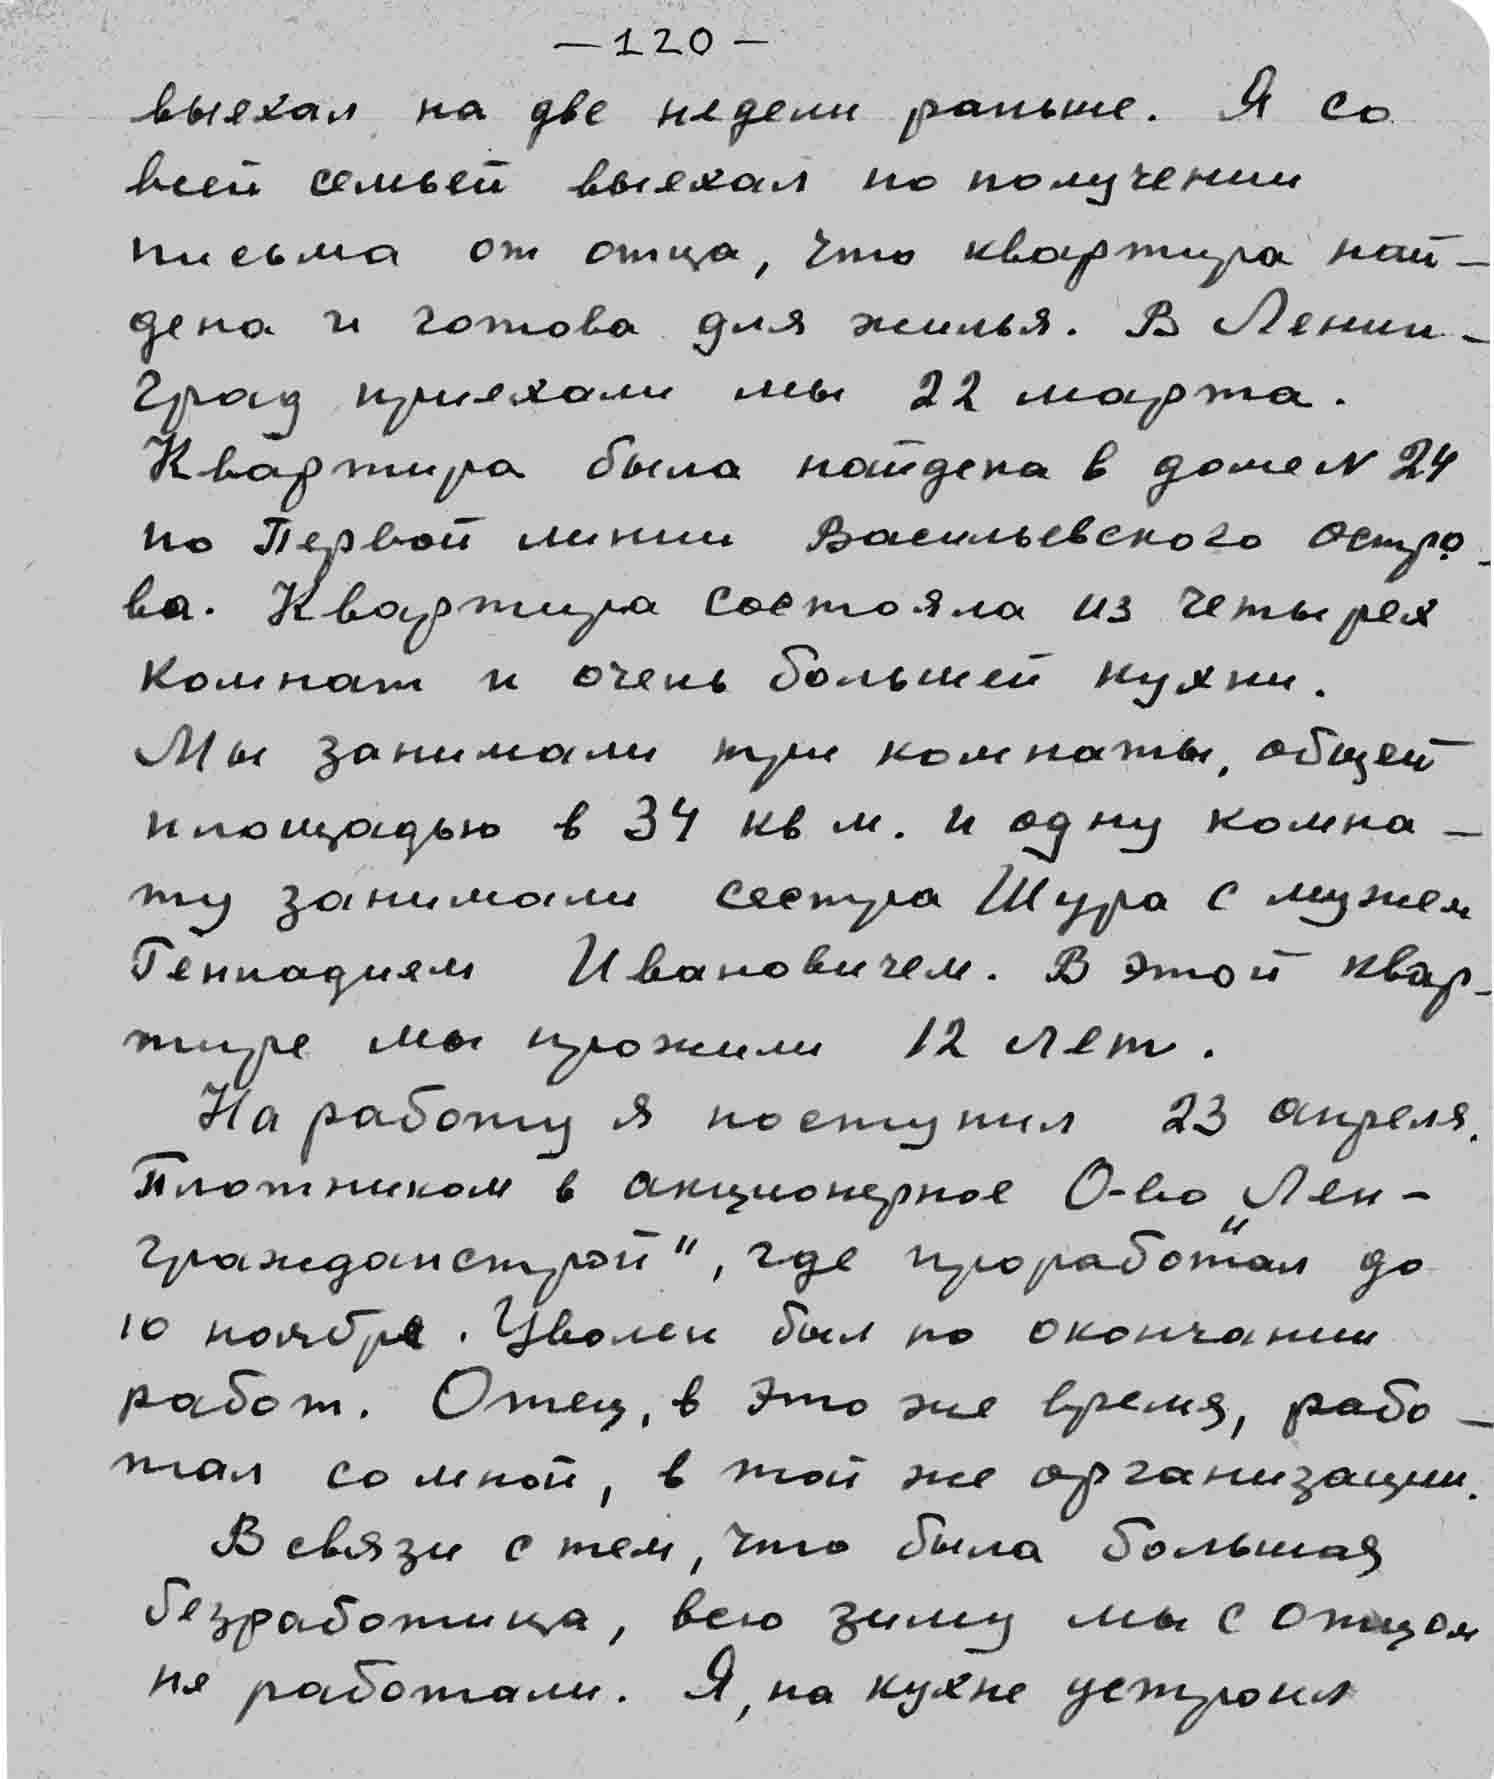 — 120 —
выехал на две недели раньше. Я со
всей семьей выехал по получении
письма от отца, что квартира най-
дена и готова для жилья. В Ленин-
град приехали мы 22 марта.
Квартира была найдена в доме N 24
по Первой линии Васильевского остро-
ва. Квартира состояла из четырех
комнат и очень большей кухни.
Мы занимали три комнаты, общей
площадью в 34 кв м. и одну комна-
ту занимали сестра Шура с мужем
Геннадием Ивановичем. В этой квар-
тире мы прожили 12 лет.
На работу я поступил 23 апреля.
Плотником в акционерное О-во „Лен-
гражданстрой", где проработал до
10 ноября. Уволен был по окончании
работ. Отец, в это же время, рабо-
тал со мной, в той же организации.
В связи с тем, что была большая
безработица, всю зиму мы с отцом
не работали. Я, на кухне устроил